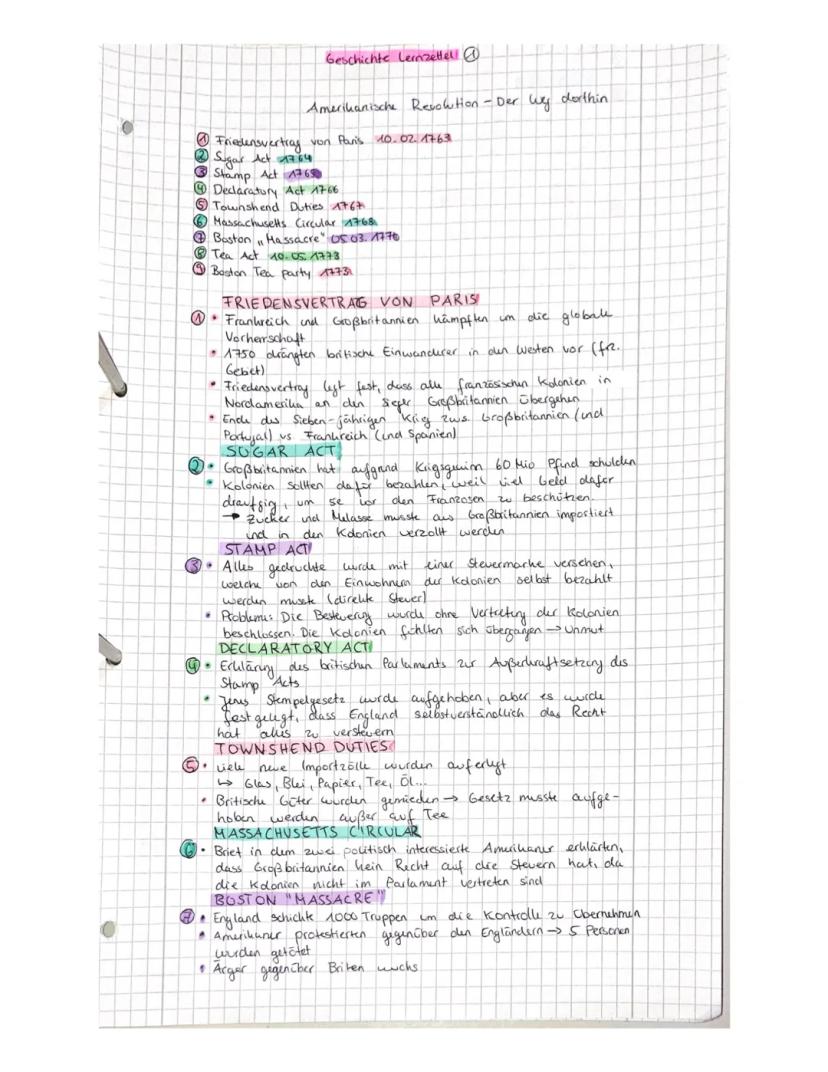 Geschichte Lernzettel ①
Amerikanische Revolution - Der Weg dorthin
① Friedensvertrag von Paris 10.02.1763
② Sugar Act 1764
③ Stamp Act 1765
④ Declaratory Act 1766
⑤ Townshend Duties 1767
⑥ Massachusetts Circular 1768
⑦ Boston „Massacre" 05.03.1770
⑧ Tea Act 10.05.1773
⑨ Boston Tea party 1773
FRIEDENSVERTRAG VON PARIS
① • Frankreich und Großbritannien kämpften um die globale
Vorherrschaft
• 1750 drängten britische Einwanderer in den Westen vor (frz.
Gebiet)
• Friedensvertrag legt fest, dass alle französischen Kolonien in
Nordamerika an den Sieger Großbritannien übergehen
• Ende des Sieben-jährigen Krieg zws. Großbritannien (und
Portugal) vs Frankreich (und Spanien)
SUGAR ACT
② • Großbritannien hat aufgrund Kriegsgewinn 60 Mio Pfund schulden
• Kolonien sollten dafür bezahlen, weil viel Geld dafür
draufging, um se vor den Franzosen zu beschützen.
→ Zucker und Melasse musste aus Großbritannien importiert
und in den Kolonien verzollt werden
STAMP ACT
③ • Alles gedruckte wurde mit einer Steuermarke versehen,
welche von den Einwohnern der Kolonien selbst bezahlt
werden musste (direkte Steuer)
• Problem: Die Besteuerung wurde ohne Vertretung der Kolonien
beschlossen. Die Kolonien fühlten sich übergangen → Unmut
DECLARATORY ACT
④ • Erklärung des britischen Parlaments zur Außerkraftsetzung des
Stamp Acts
• Jenes Stempelgesetz wurde aufgehoben, aber es wurde
festgelegt, dass England selbstverständlich das Recht
hat alles zu versteuern
TOWNSHEND DUTIES
⑤ • viele neue Importzölle wurden auferlegt
↳ Glas, Blei, Papier, Tee, Öl...
• Britische Güter wurden gemieden → Gesetz musste aufge-
hoben werden außer auf Tee
MASSACHUSETTS CIRCULAR
⑥ • Brief in dem zwei politisch interessierte Amerikaner erklärten,
dass Großbritannien kein Recht auf die Steuern hat, da
die Kolonien nicht im Parlament vertreten sind
BOSTON "MASSACRE"
⑦ • England schickte 1000 Truppen um die Kontrolle zu übernehmen
• Amerikaner protestierten gegenüber den Engländern → 5 Personen
wurden getötet
• Ärger gegenüber Briten wuchs